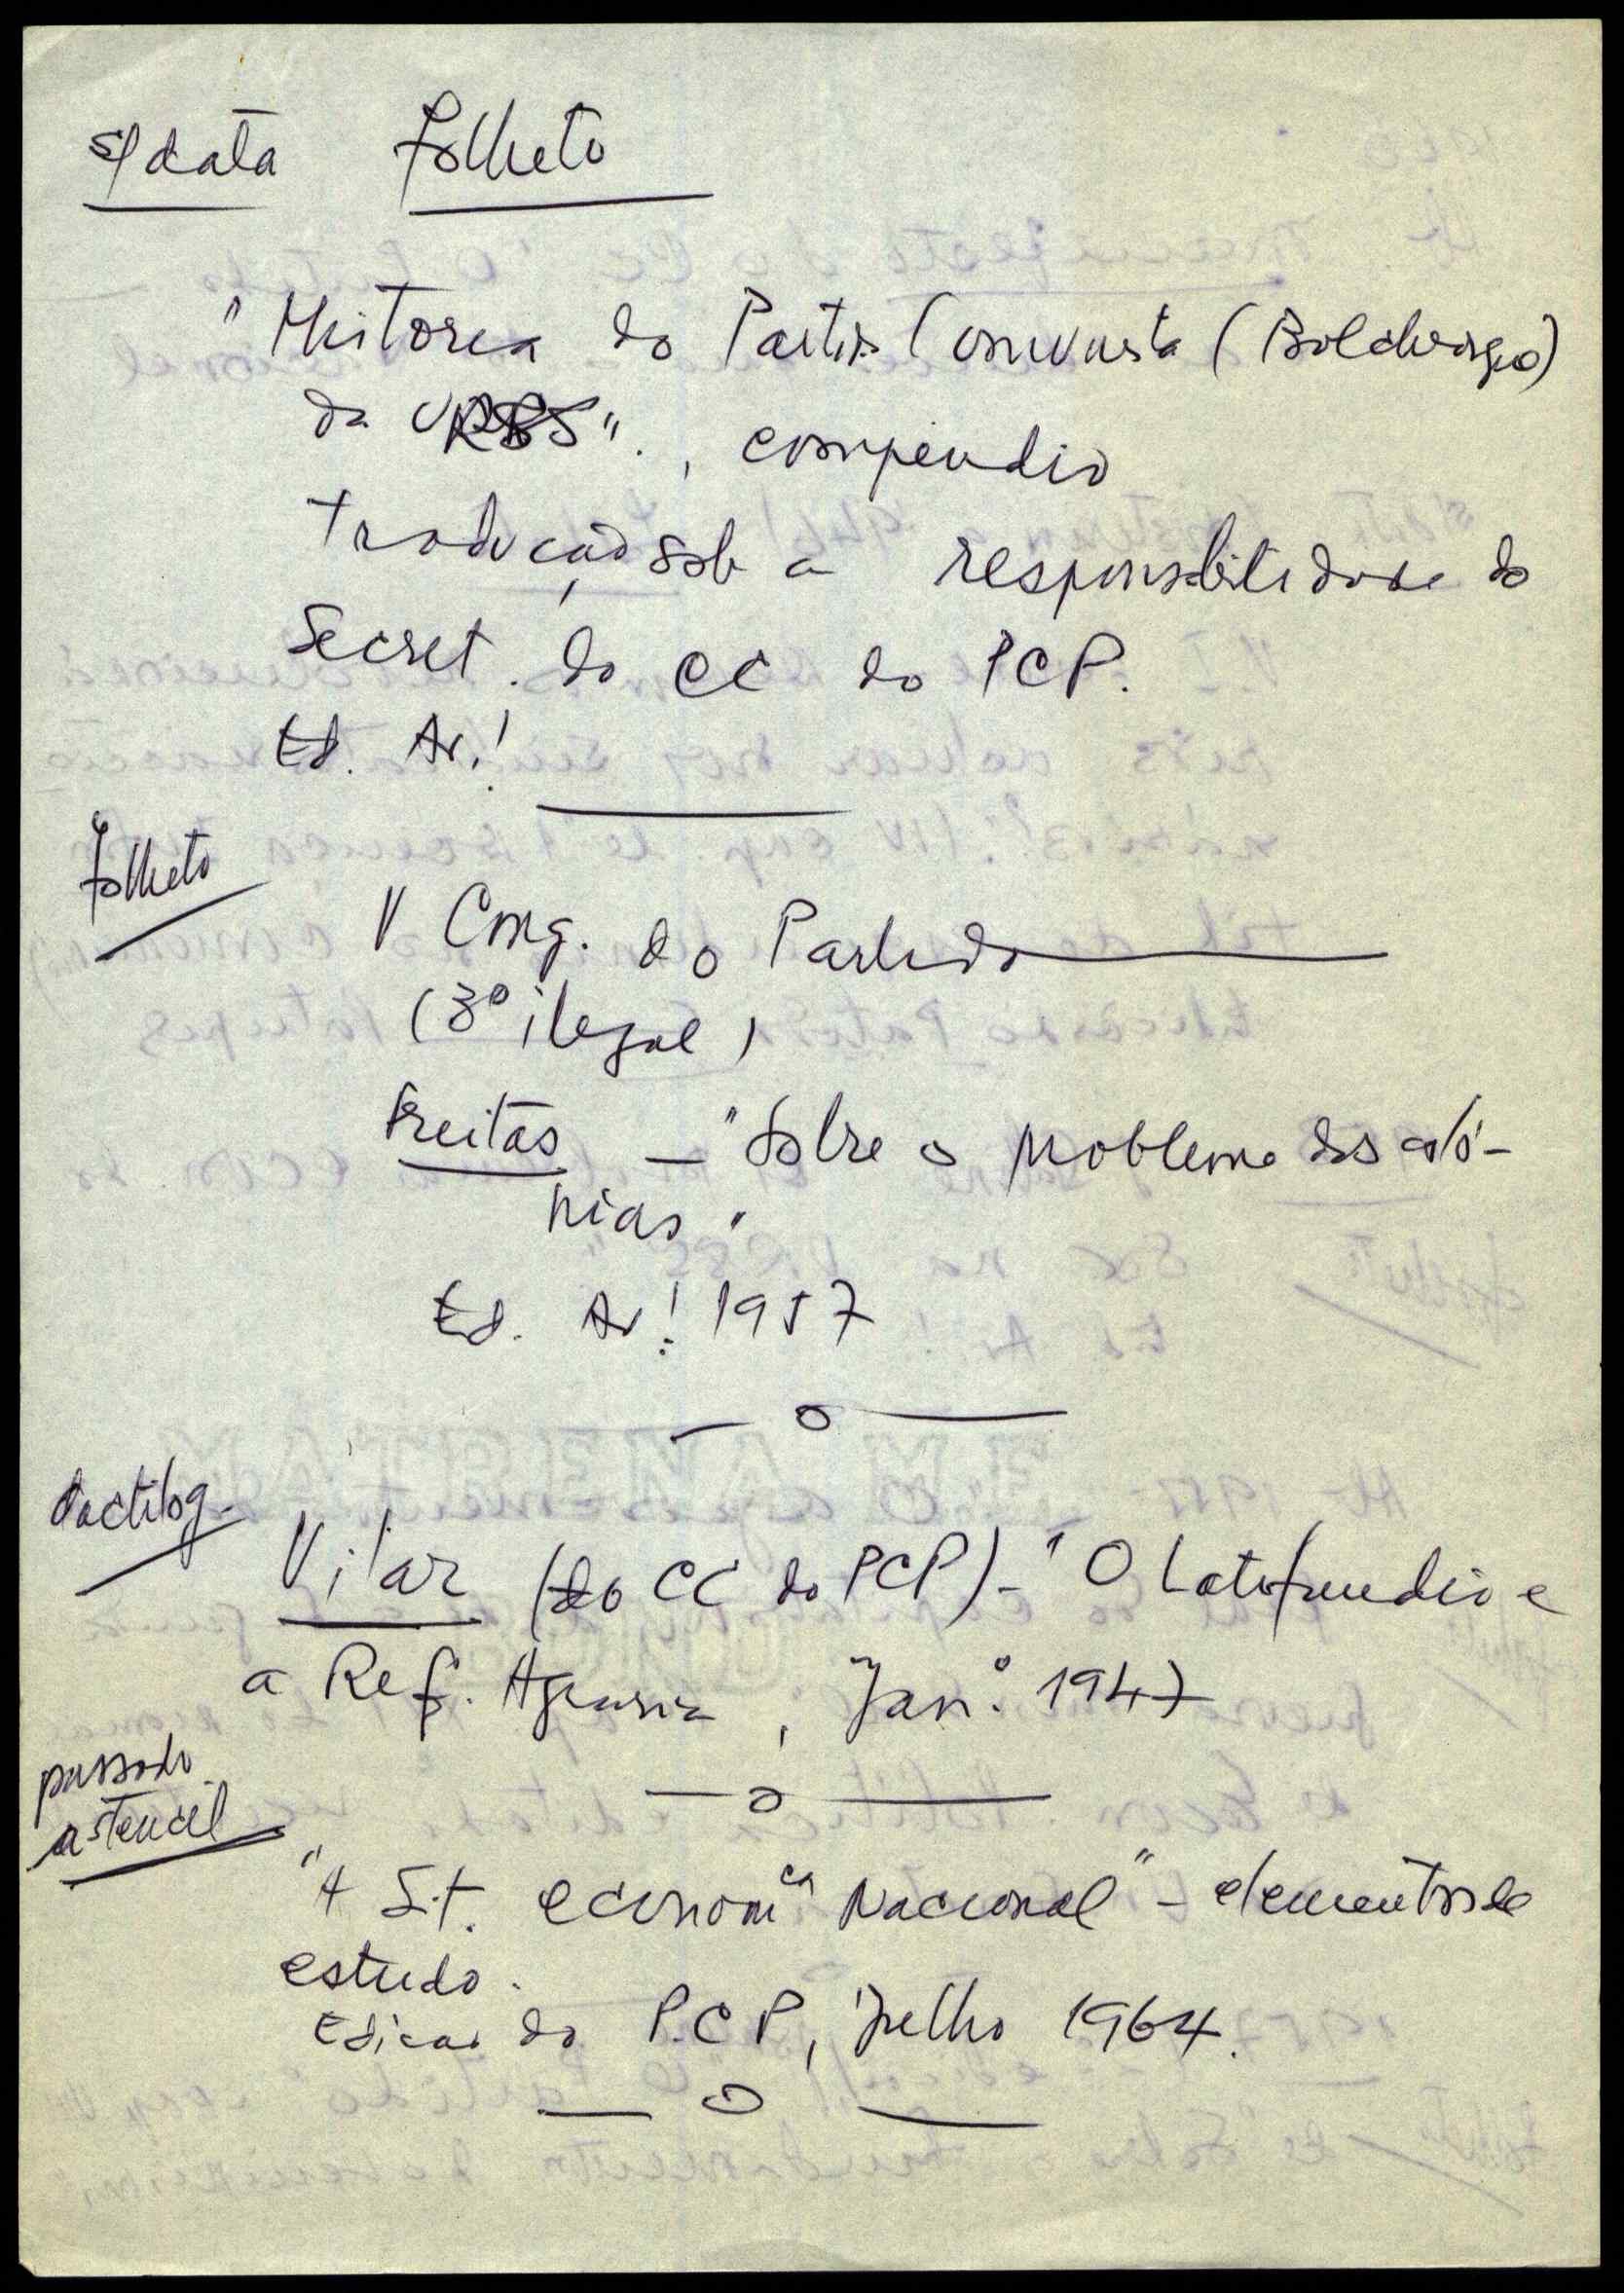 s/ data folheto
"História do Partido Comunista (Bolchevique)
da URSS"., compendio
tradução sob a responsabilidade do
Secret. do CC do PCP.
Ed. Av.!
folheto
V Cong. do Partido
(3º ilegal)
Freitas — "Sobre o problema das coló-
nias"
Ed. Av! 1957
— o —
dactilog.
Vilar (do CC do PCP) - "O Latifundio e
a Ref. Agraria, Janº. 1947
— o —
passado
a stencil
"A Sit. económca Nacional" - elementos de
estudo.
Edicao do P.C P, Julho 1964.
— o —